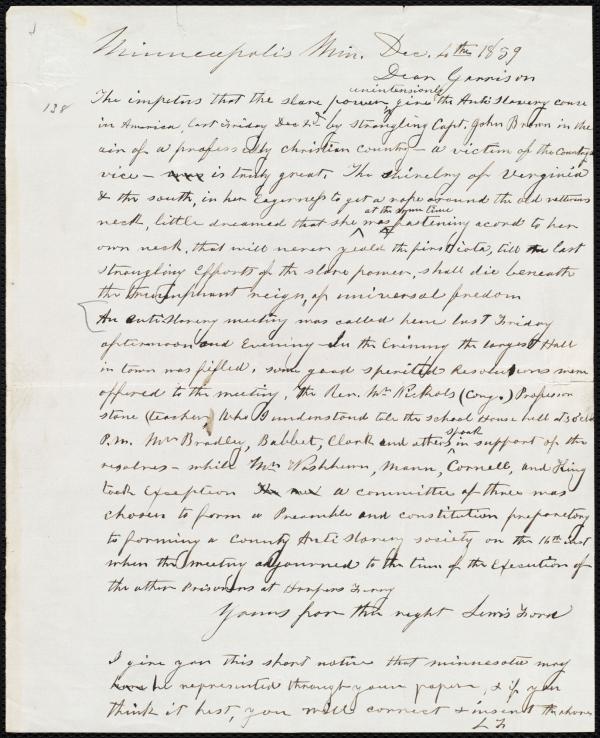 Minneapolis Min. Dec. 4th 1859
Dear Garrison
unintensionly
128
The impetus that the slave power, give the Anti Slavery cause
in America, last Friday Dec 2d by strangling Capt. John Brown in the
air of a professedly christian country – a victim of the Country's
vice – is truly great. The chivelry of Verginia
& the south, in her Eagerness to get a rope around the old vetterans
at the same time
neck, little dreamed that she was fastening acord to her
own neck, that will never yeald the first iota, till the last
strangling Efforts of the slave power, shall die beneath
the triumphant reign, of universal freedom
An anti slavery meeting was called here last Friday
afternoon and Evening – In the Evening the largest Hall
in town was filled, some good sperited Resolutions were
offered to the meeting, the Rev. Mr Nichols (Cong.) Professon
stone (teacher) Who I understand tole the school House bell at 3 o'clock
spoak
P.m. Mrs Bradley, Babbet, Clark and others in support of the
resolves – while Mrs Washburn, Mann, Cornell, and King
took Exception a committee of three was
chosen to form a Preamble and constitution preparetory
to forming a County Anti Slavery society on the 16th inst
when the meeting adjourned to the time of the Execution of
the other Prisoners at Harpers Ferry
Yours for the right Lewis Ford
I give you this short notice that minnesota may
be represented through your paper, & if you
think it best, you will correct & insert the above
L F